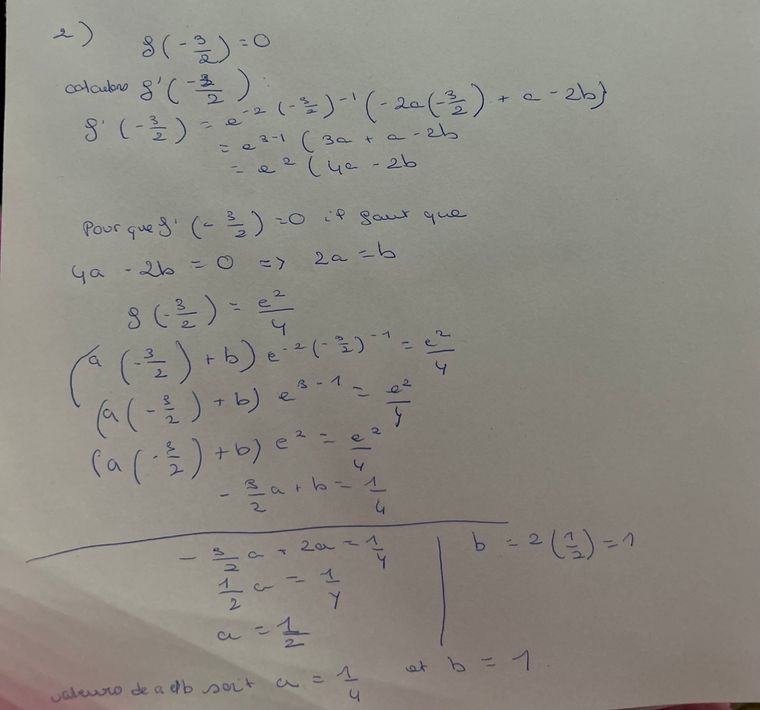 2) f(-3/2) = 0
calculons f'(-3/2) :
f'(-3/2) = e^{-2(-3/2)-1} (-2a(-3/2) + a - 2b)
= e^{3-1} (3a + a - 2b
= e^2 (4a - 2b
Pour que f'(-3/2) = 0 il faut que
4a - 2b = 0 => 2a = b
f(-3/2) = e^2/4
(a(-3/2) + b) e^{-2(-3/2)-1} = e^2/4
(a(-3/2) + b) e^{3-1} = e^2/4
(a(-3/2) + b) e^2 = e^2/4
-3/2 a + b = 1/4
-3/2 a + 2a = 1/4
1/2 a = 1/4
a = 1/2
b = 2(1/2) = 1
valeurs de a et b sont a = 1/4 et b = 1.